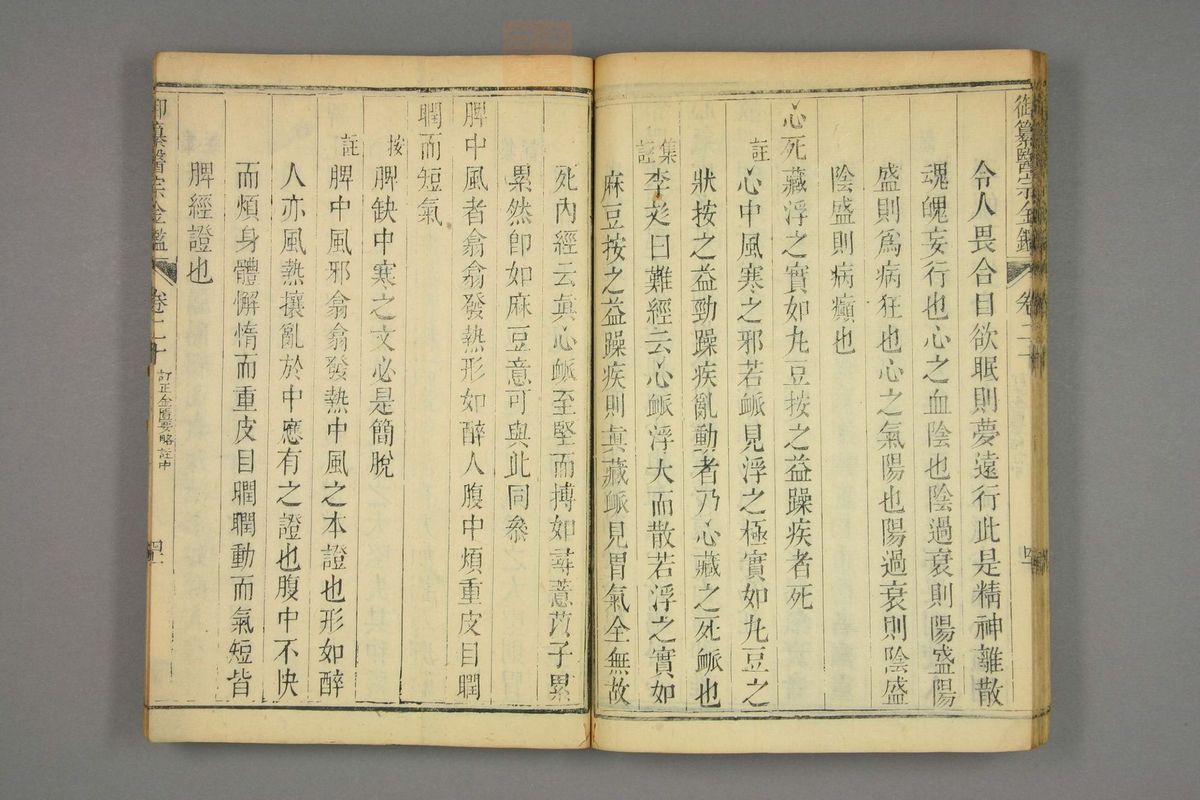 御纂醫宗金鑑 卷二十 四
令人畏合目欲眠則夢遠行此是精神離散
魂魄妄行也心之血陰也陰過衰則陽盛陽
盛則為病狂也心之氣陽也陽過衰則陰盛
陰盛則病癲也
心死藏浮之實如丸豆按之益躁疾者死
註 心中風寒之邪若脈見浮之極實如丸豆之
狀按之益勁躁疾亂動者乃心藏之死脈也
集註 李彣曰難經云心脈浮大而散若浮之實如
麻豆按之益躁疾則眞藏脈見胃氣全無故
死內經云眞心脈至堅而搏如尋薏苡子累
累然卽如麻豆意可與此同參
脾中風者翕翕發熱形如醉人腹中煩重皮目瞤
瞤而短氣
按 脾缺中寒之文必是簡脫
註 脾中風邪翕翕發熱中風之本證也形如醉
人亦風熱攘亂於中應有之證也腹中不快
而煩身體懈惰而重皮目瞤瞤動而氣短皆
脾經證也
御纂醫宗金鑑 卷二十 訂正金匱要略註中